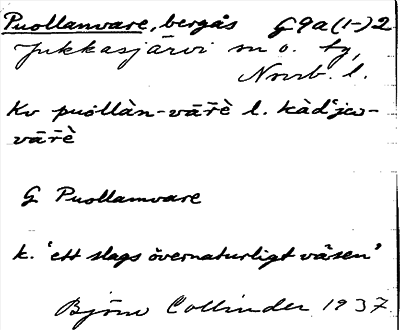 Puollamvare, bergås G9a(1-)2
Jukkasjärvi sn o. tg,
Norrb. l.
Kv puollàn-vārè l. kàd'jew-
vārè
G Puollamvare
k. 'ett slags övernaturligt väsen'
Björn Collinder 1937